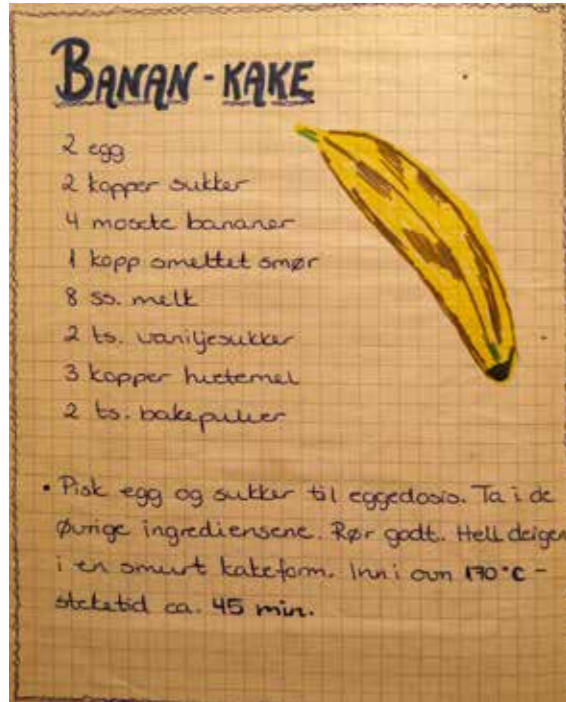 BANAN-KAKE
2 egg
2 kopper sukker
4 moste bananer
1 kopp smeltet smør
8 ss. melk
2 ts. vaniljesukker
3 kopper hvetemel
2 ts. bakepulver
• Pisk egg og sukker til eggedosis. Ta i de
øvrige ingrediensene. Rør godt. Hell deigen
i en smurt kakeform. Inn i ovn 170°C -
steketid ca. 45 min.